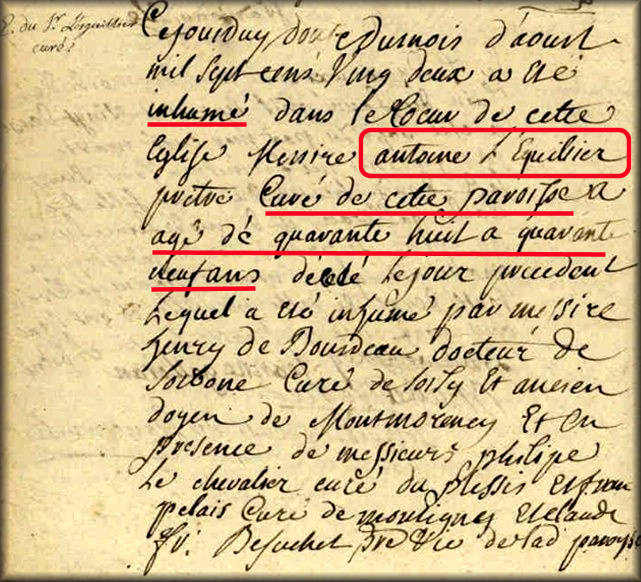 E. du Sr. Lequillier
curé
Cejourduy douze du mois d'aoust
mil sept cens Ving deux a eté
inhumé dans le Coeur de cette
Eglise Messire antoine L'Equilier
pretre Curé de cette paroisse a
agé dé quarante huit a quarante
neuf ans décédé Le jour precedent
Lequel a eté inhumé par messire
henry de Bourdeau docteur de
Sorbone Curé de soisy Et ancien
doyen de Montmorency Et En
presence de messieurs philipe
Le chevalier curé du plessis Et fran
pelais Curé de moutignes Et claude
fr: Besuchet pre Vic de lad paroisse